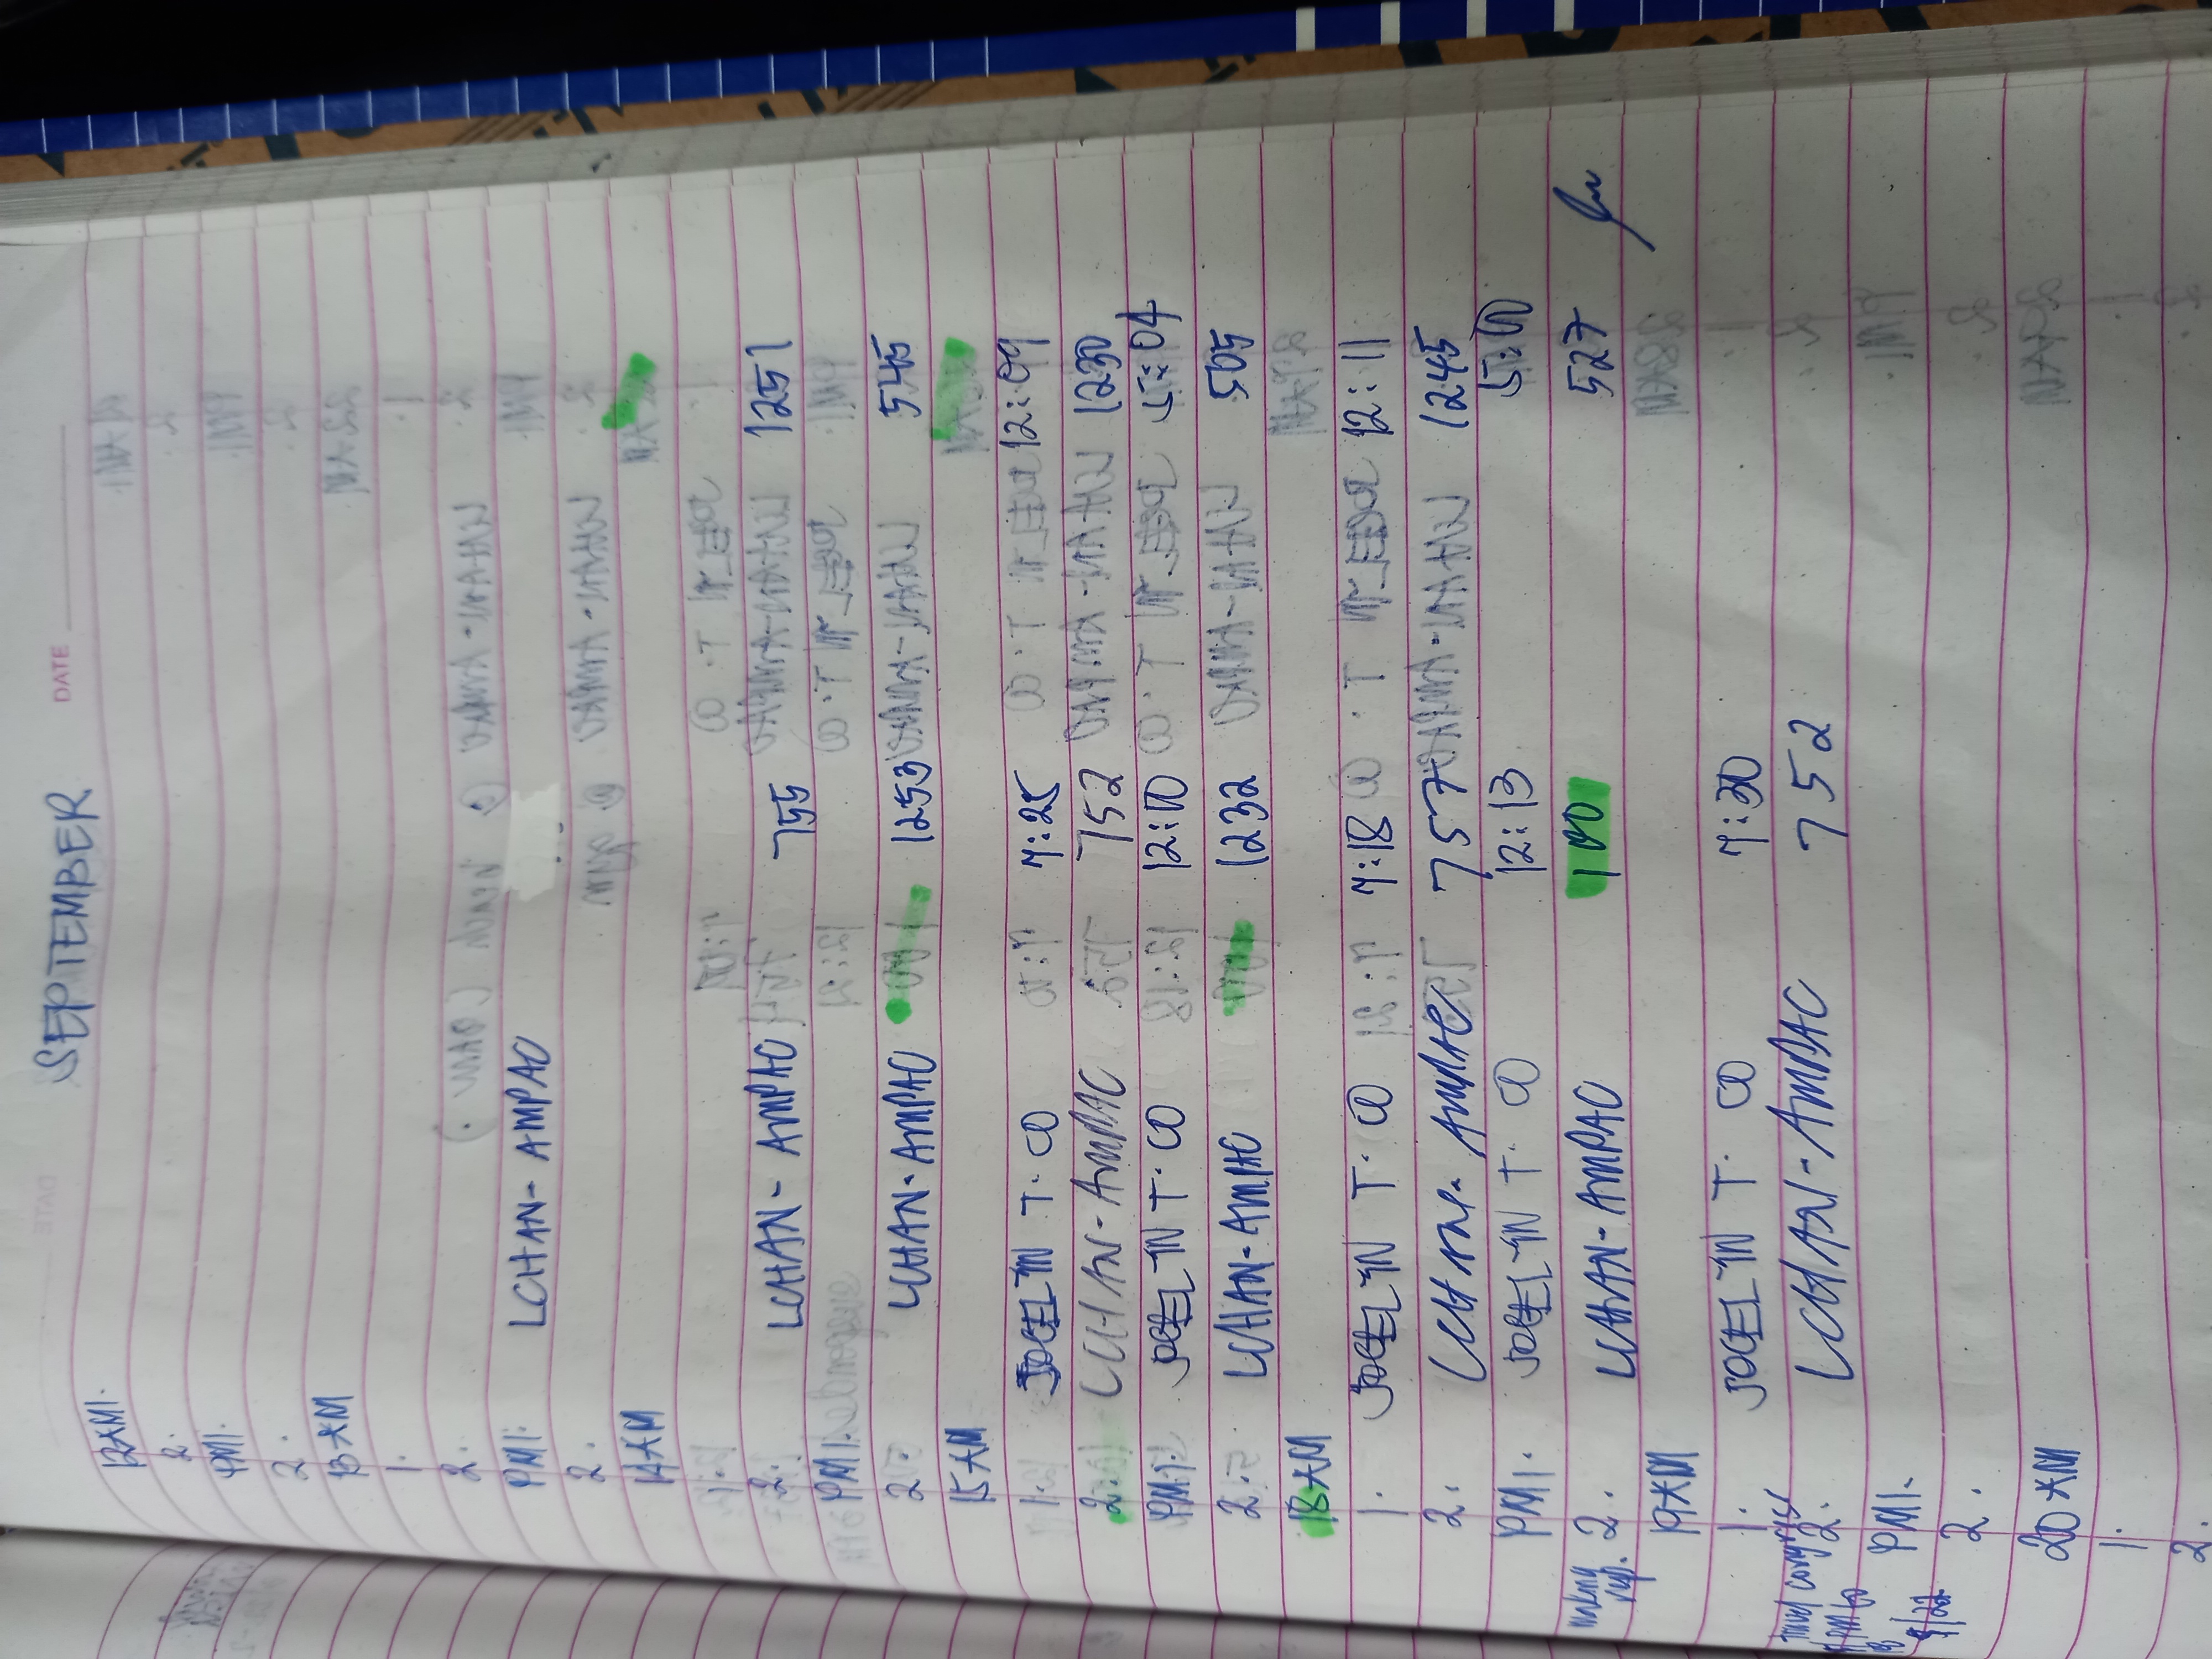 DATE
SEPTEMBER
12 AM 1.
2.
PM 1.
2.
13 AM
1.
2.
PM 1. LCHAN - AMPAC
2.
14 AM
2. LCHAN - AMPAC 755 1251
PM 1.
2. LCHAN - AMPAC 1253 545
15 AM
1. JOCELYN T. CO 7:25 12:09
2. LCHAN - AMPAC 752 1230
PM 1. JOCELYN T. CO 12:10 5:04
2. LCHAN - AMPAC 1232 505
18 AM
1. JOCELYN T. CO 7:18 12:11
2. LCHAN - AMPAC 757 1245
PM 1. JOCELYN T. CO 12:13 5:10
2. LCHAN - AMPAC 100 527
19 AM
1. JOCELYN T. CO 7:30
2. LCHAN - AMPAC 752
PM 1.
2.
9/22
20 AM
1.
2.